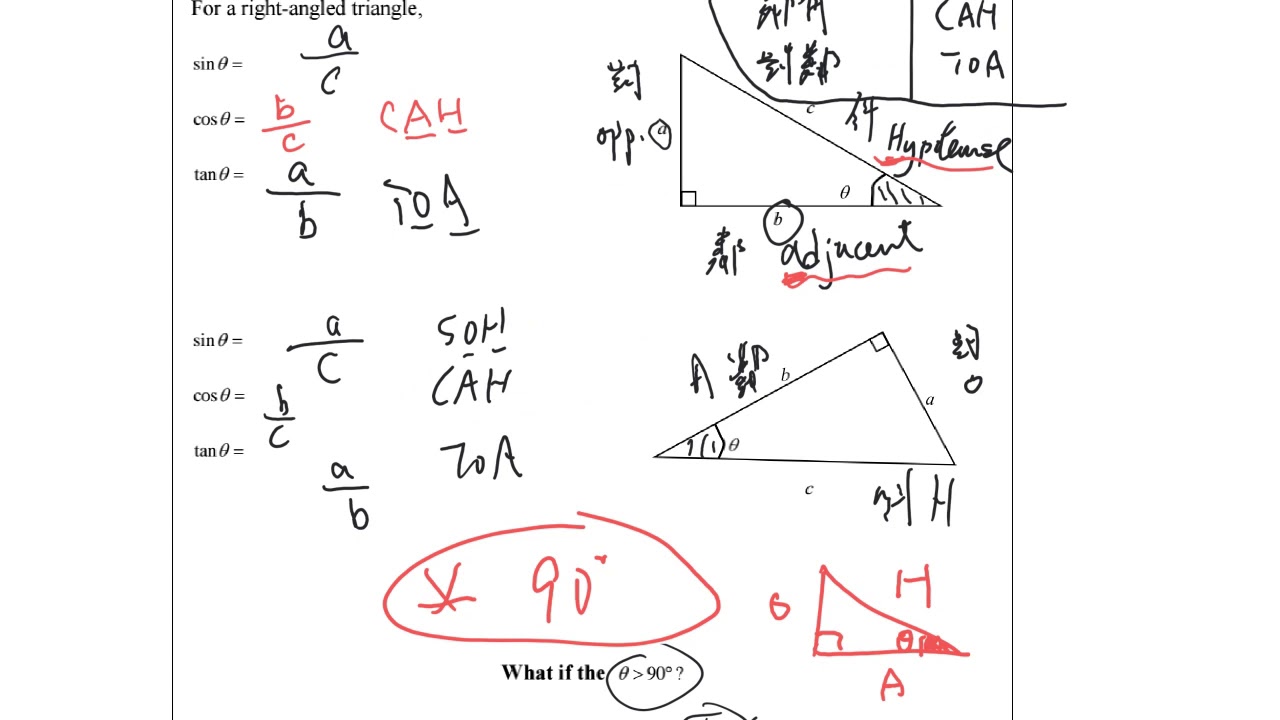 For a right-angled triangle,
sin θ = a/c
CAH
TOA
cos θ = b/c CAH
tan θ = a/b TOA
對
opp. a
c
斜
Hypotenuse
θ
b
鄰 adjacent
sin θ = a/c SOH
cos θ = b/c CAH
tan θ = a/b TOA
A 鄰 b
對
O
a
θ
c
斜 H
* 90°
O H
θ
A
What if the θ > 90° ?